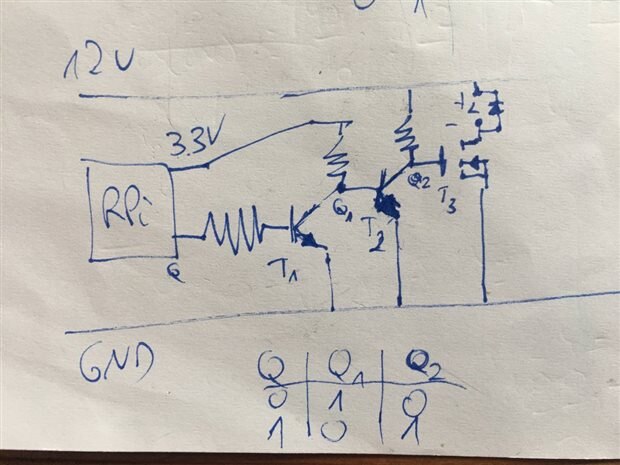 12V
3.3V
RPi
Q
T1
Q1
T2
Q2
T3
GND
Q Q1 Q2
0 1 0
1 0 1